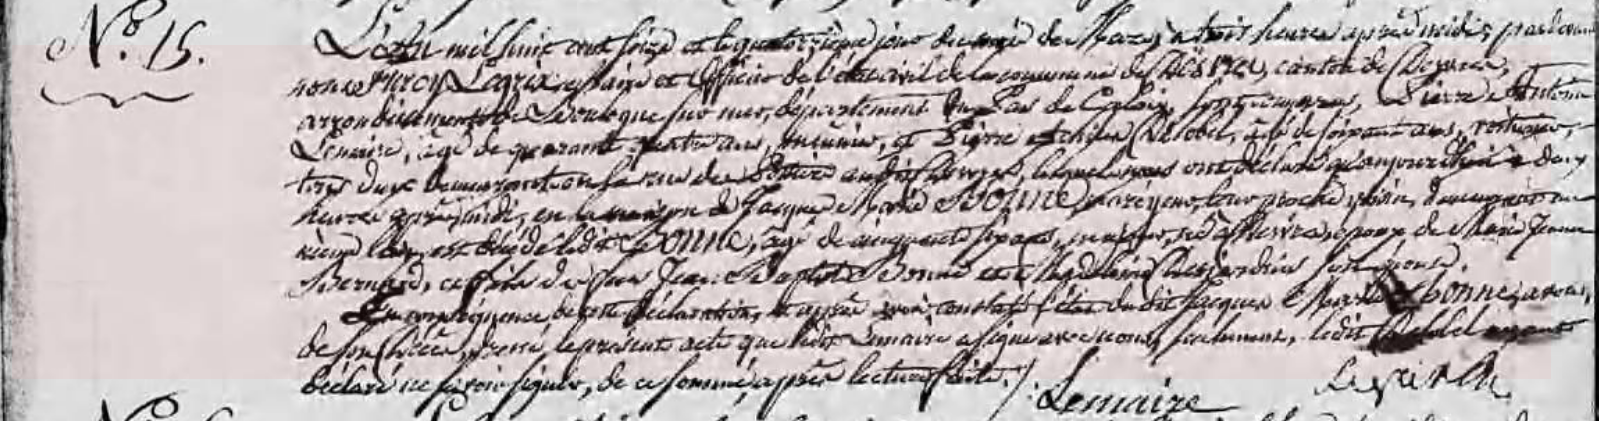 N.° 15.
L'an mil huit cent seize et le quatorzieme jour du mois de Mars, a trois heures après midi, pardevant
nous Legrix, maire et officier de l'état civil de la commune de Desvres, canton de Desvres,
arrondissement de Boulogne sur mer, département du Pas de Calais, sont comparus, Pierre Antoine
Lemaire, agé de quarante quatre ans, meunier, et Pierre Delobel, agé de soixante ans, voiturier,
tous deux demeurant en la rue des audit Desvres, lesquels nous ont déclaré qu'aujourd'hui a deux
heures après midi, en la maison de Jacques Marie BONNE, leur proche voisin, demeurant au
même lieu, est décédé ledit BONNE, agé de cinquante six ans, né a Desvres, epoux de Marie Jeanne
Bernard, et fils de feu Jean Baptiste Bonne et Magdelaine Desjardins son epouse.
En conséquence de cette déclaration, et après avoir constaté l'état du dit Jacques Marie Bonne, avons,
de son décès, dressé le présent acte que ledit Lemaire a signé avec nous, seulement, ledit Delobel ayant
déclaré ne savoir signer, de ce sommé, après lecture faite./.
Lemaire